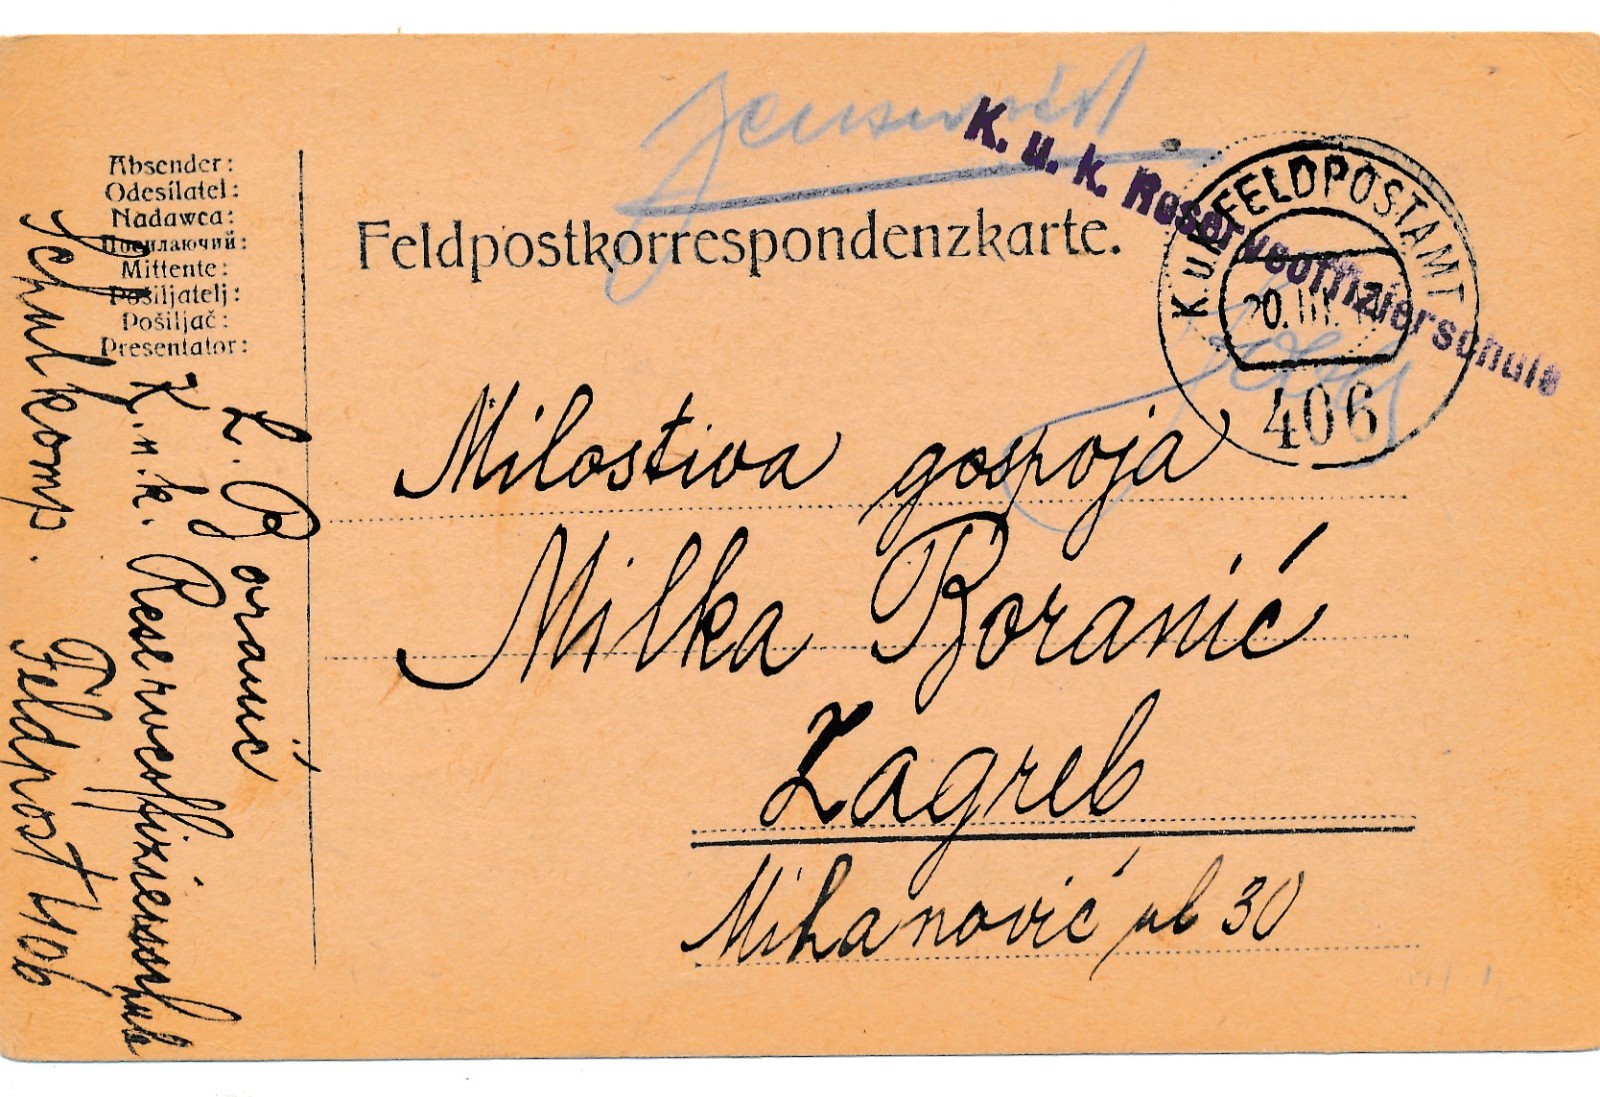 Absender:
Odesílatel:
Nadawca:
Посилаючий:
Mittente:
Pošiljatelj:
Pošiljač:
Presentator:
Z. Boranić
K. u. k. Reserveoffiziersschule
Schulkomp.
Feldpost 406
Zensuriert
Feldpostkorrespondenzkarte.
K. u. k. Reserveoffizierschule
K.u.K. FELDPOSTAMT
20. III.
406
Milostiva gospoja
Milka Boranić
Zagreb
Mihanović ul 30